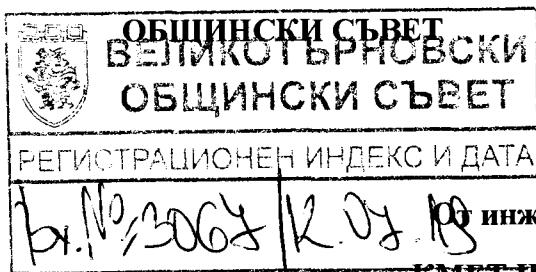 ОБЩИНСКИ СЪВЕТ
ВЕЛИКОТЪРНОВСКИ
ОБЩИНСКИ СЪВЕТ
РЕГИСТРАЦИОНЕН ИНДЕКС И ДАТА
Вх.№ 3067
От инж
КМЕТ